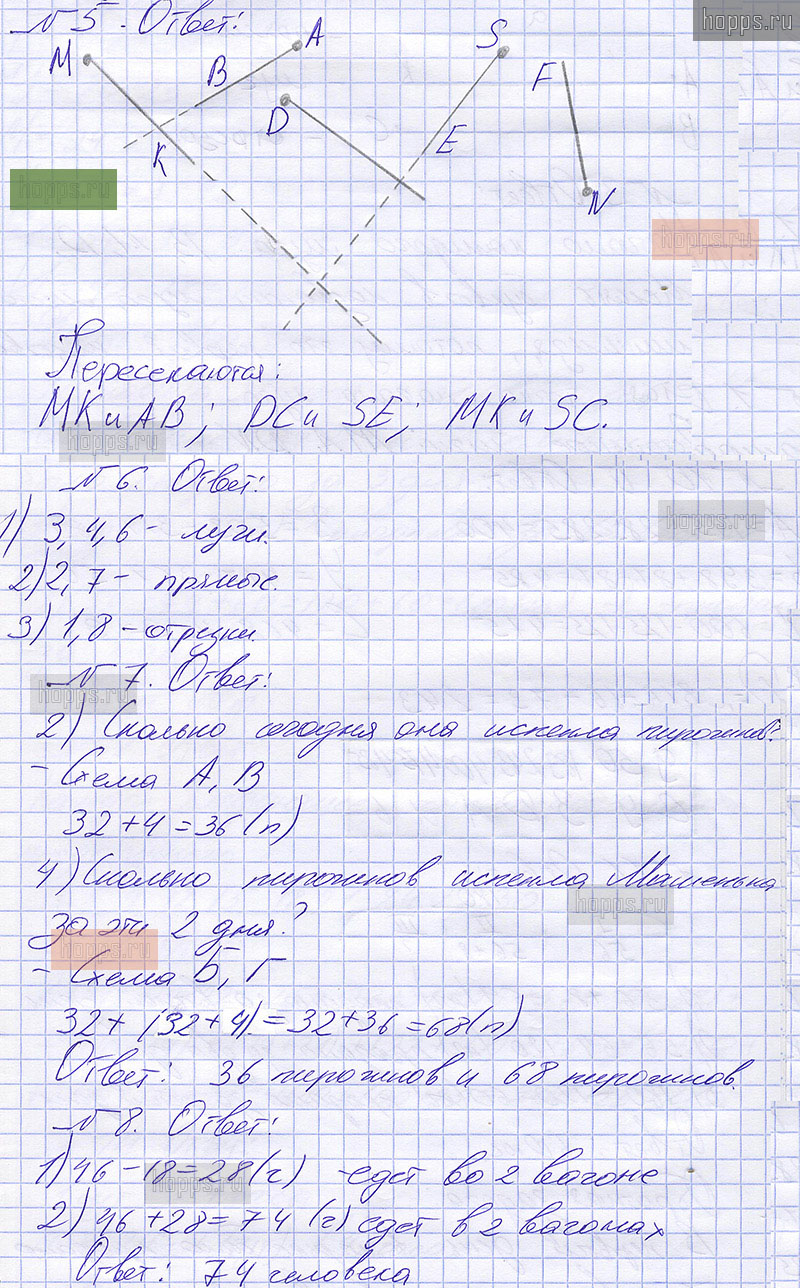 hopps.ru
№5. Ответ:
M
B
A
S
F
D
K
E
N
hopps.ru
hopps.ru
Пересекаются:
МК и АВ; DC и SE; МК и SC.
hopps.ru
№6. Ответ:
1) 3, 4, 6 - лучи.
hopps.ru
2) 2, 7 - прямые.
3) 1, 8 - отрезки.
№7. Ответ:
hopps.ru
2) Сколько сегодня она испекла пирожков?
- Схема А, В
32 + 4 = 36 (п)
4) Сколько пирожков испекла Машенька
hopps.ru
за эти 2 дня?
hopps.ru
- Схема Б, Г
32 + (32 + 4) = 32 + 36 = 68 (п)
Ответ: 36 пирожков и 68 пирожков.
№8. Ответ:
1) 46 - 18 = 28 (ч) - едет во 2 вагоне
hopps.ru
2) 46 + 28 = 74 (ч) едет в 2 вагонах
Ответ: 74 человека